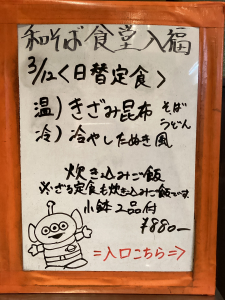 和そば食堂入福
3/12<日替定食>
温)きざみ昆布 そば
うどん
冷)冷やしたぬき風
炊き込みご飯
必ざる定食も炊き込みご飯です
小鉢2品付
¥880-
=入口こちら=>